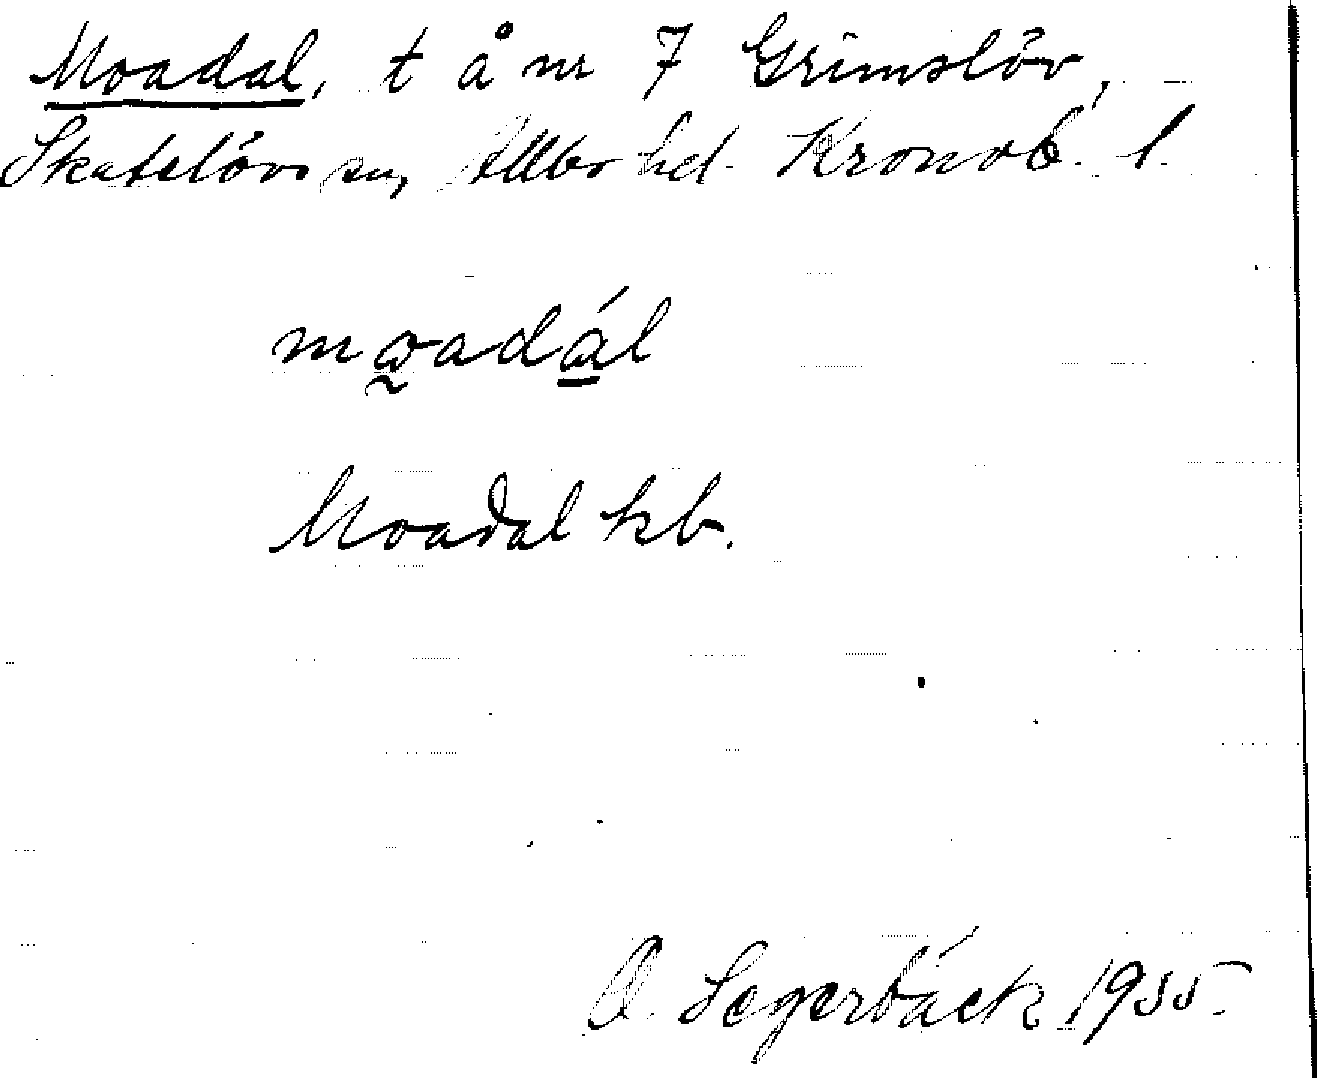 Moadal, t å nr 7 Grimslöv,
Skatelövs sn, Allbo hd. Kronob. l.
mωadál
Moadal kb.
B. Segerbäck 1955.